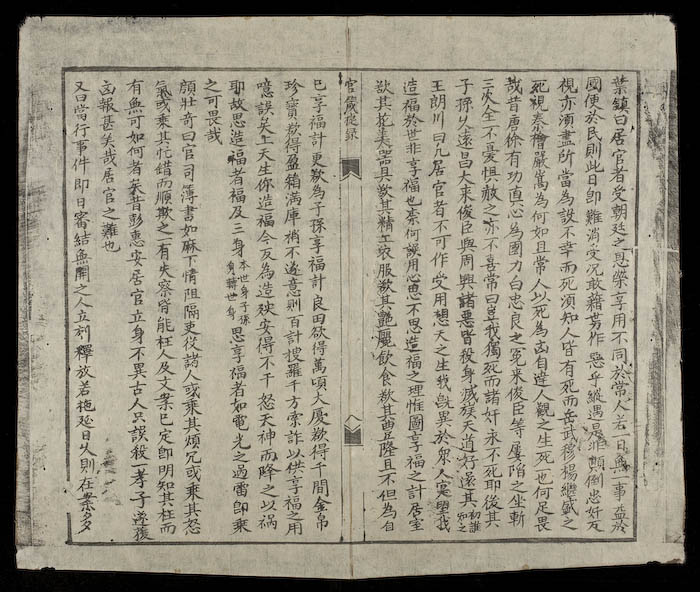 葉鎮曰居官者受朝廷之恩榮享用不同於常人若一日無一事益於
國便於民則此日即難消受況敢藉勢作惡乎縱遇是非顛倒忠奸反
視亦須盡所當為設不幸而死須知人皆有死而岳武穆楊繼盛之
死視秦檜嚴嵩為何如且常人以死為凶自達人觀之生死也何足畏
哉昔唐徐有功真心為國力白忠良之冤來俊臣等屢陷之坐斬
三次全不憂惧赦之亦不喜常曰豈我獨死而諸奸永不死耶後其
子孫久遠昌大來俊臣與周興諸惡皆殺身滅族天道好還其初誰知之
王朗川曰凡居官者不可作受用想天之生我既異於眾人寔望我
造福於世非享福也柰何誤用心思不思造福之理惟圖享福之計居室
欲其花美器具欲其精工衣服欲其艷麗飲食欲其豊隆且不但為自
官箴寔錄
八
已享福計更欲為子孫享福計良田欲得萬頃大廈欲得千間金帛
珍寶欲得盈箱滿庫稍不遂意則百計搜羅千方索詐以供享福之用
噫誤矣上天生你造福今反為造殃安得不干怒天神而降之以禍
耶故思造福者福及三身本世身子孫身轉世身思享福者如電光之過雷即乘
之可畏哉
顏壯奇曰官司簿書如麻下情阻隔吏役諸人或乘其煩冗或乘其怒
氣或乘其忙錯而順欺之一有失察皆能枉人及文案已定即明知其枉而
有無可如何者矣昔彭惠安居官立身不異古人只誤殺一孝子遂獲
凶報甚矣哉居官之難也
又曰當行事件即日審結無關之人立刻釋放若拖延日久則在案多